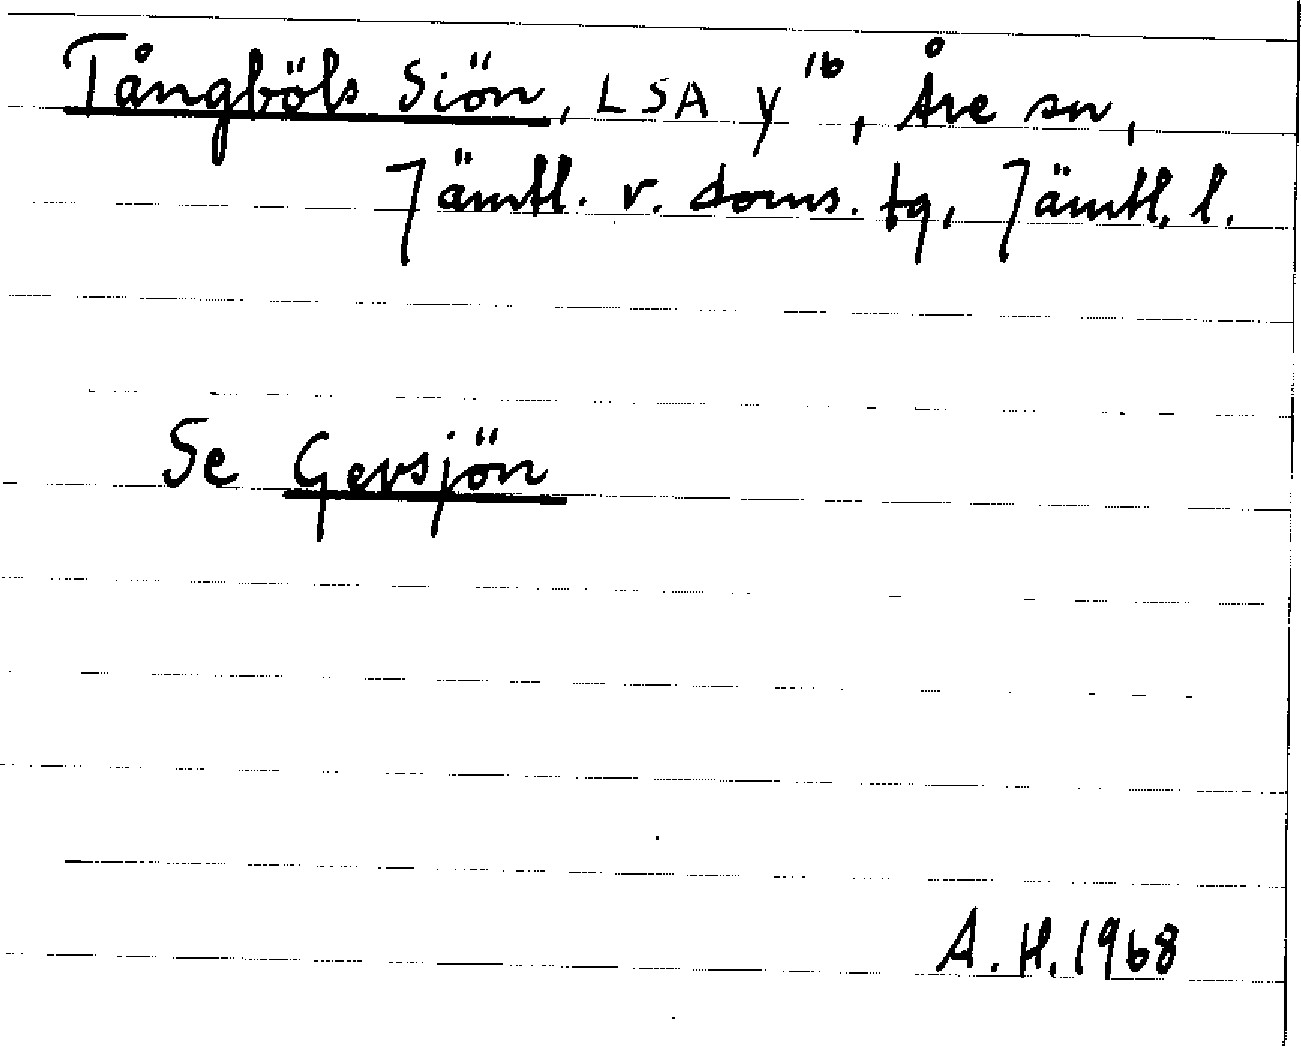 Tångböls Siön, LSA Y¹⁶, Åre sn,
Jämtl. v. doms. tg, Jämtl. l.
Se Gevsjön
A. H. 1968